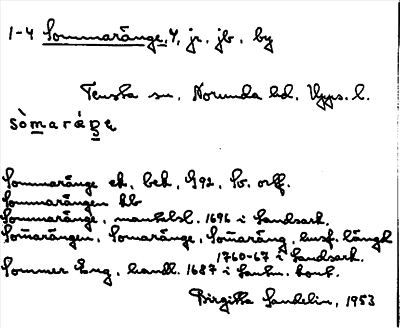 1-4 Sommaränge, 4, jr, jb, by
Tensta sn, Norunda hd, Upps. l.
sòmaráŋe
Sommaränge ek, bek, G92, Sv. orff.
Sommarängen hb
Sommaränge, mantalsl. 1696 i Landsark.
Som̄arängen, Somaränge, Som̄aräng, husf. längd
1760-67 i Landsark.
Sommer Eng, handl. 1687 i Lantm. kont.
Birgitta Sandelin, 1953